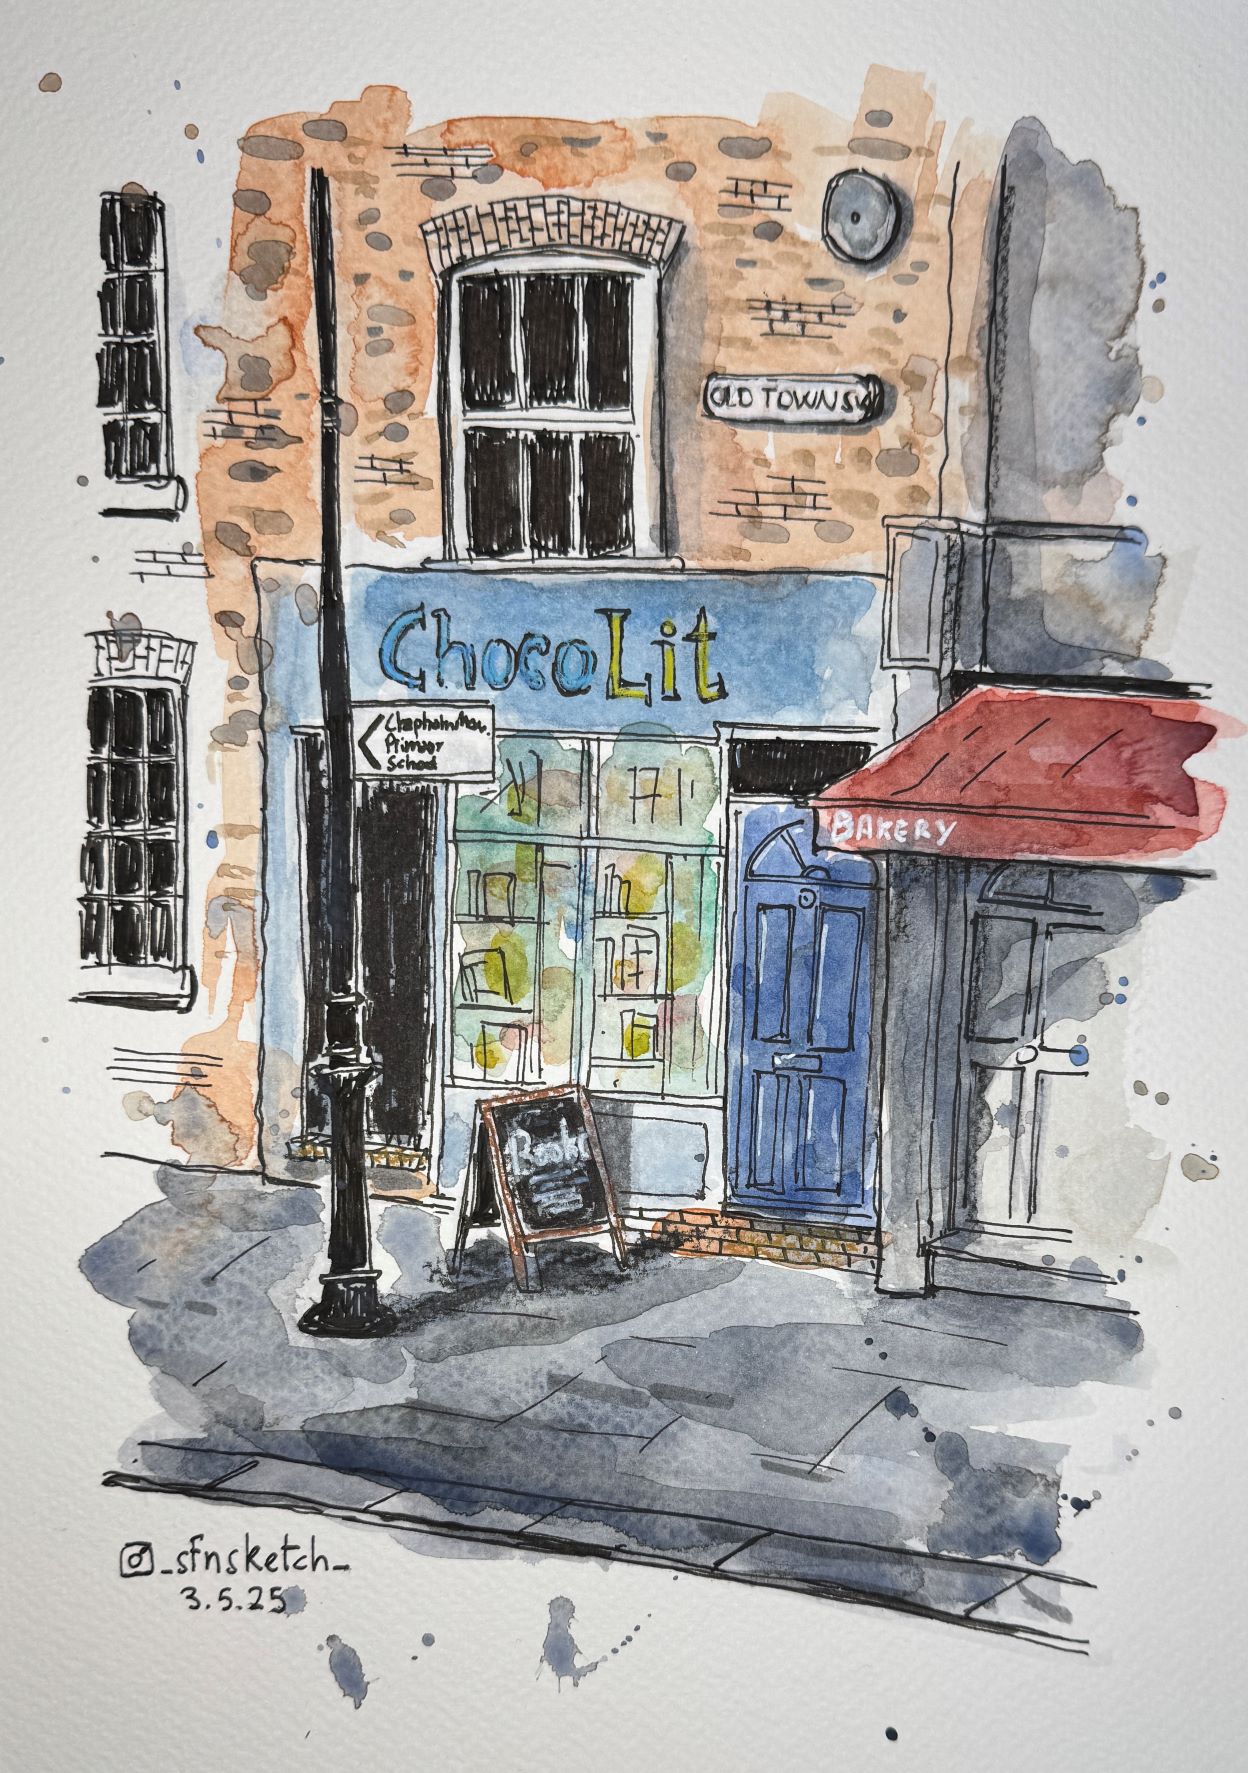 OLD TOWN SW
ChocoLit
Primary
School
BAKERY
Books
_sfnsketch_
3.5.25